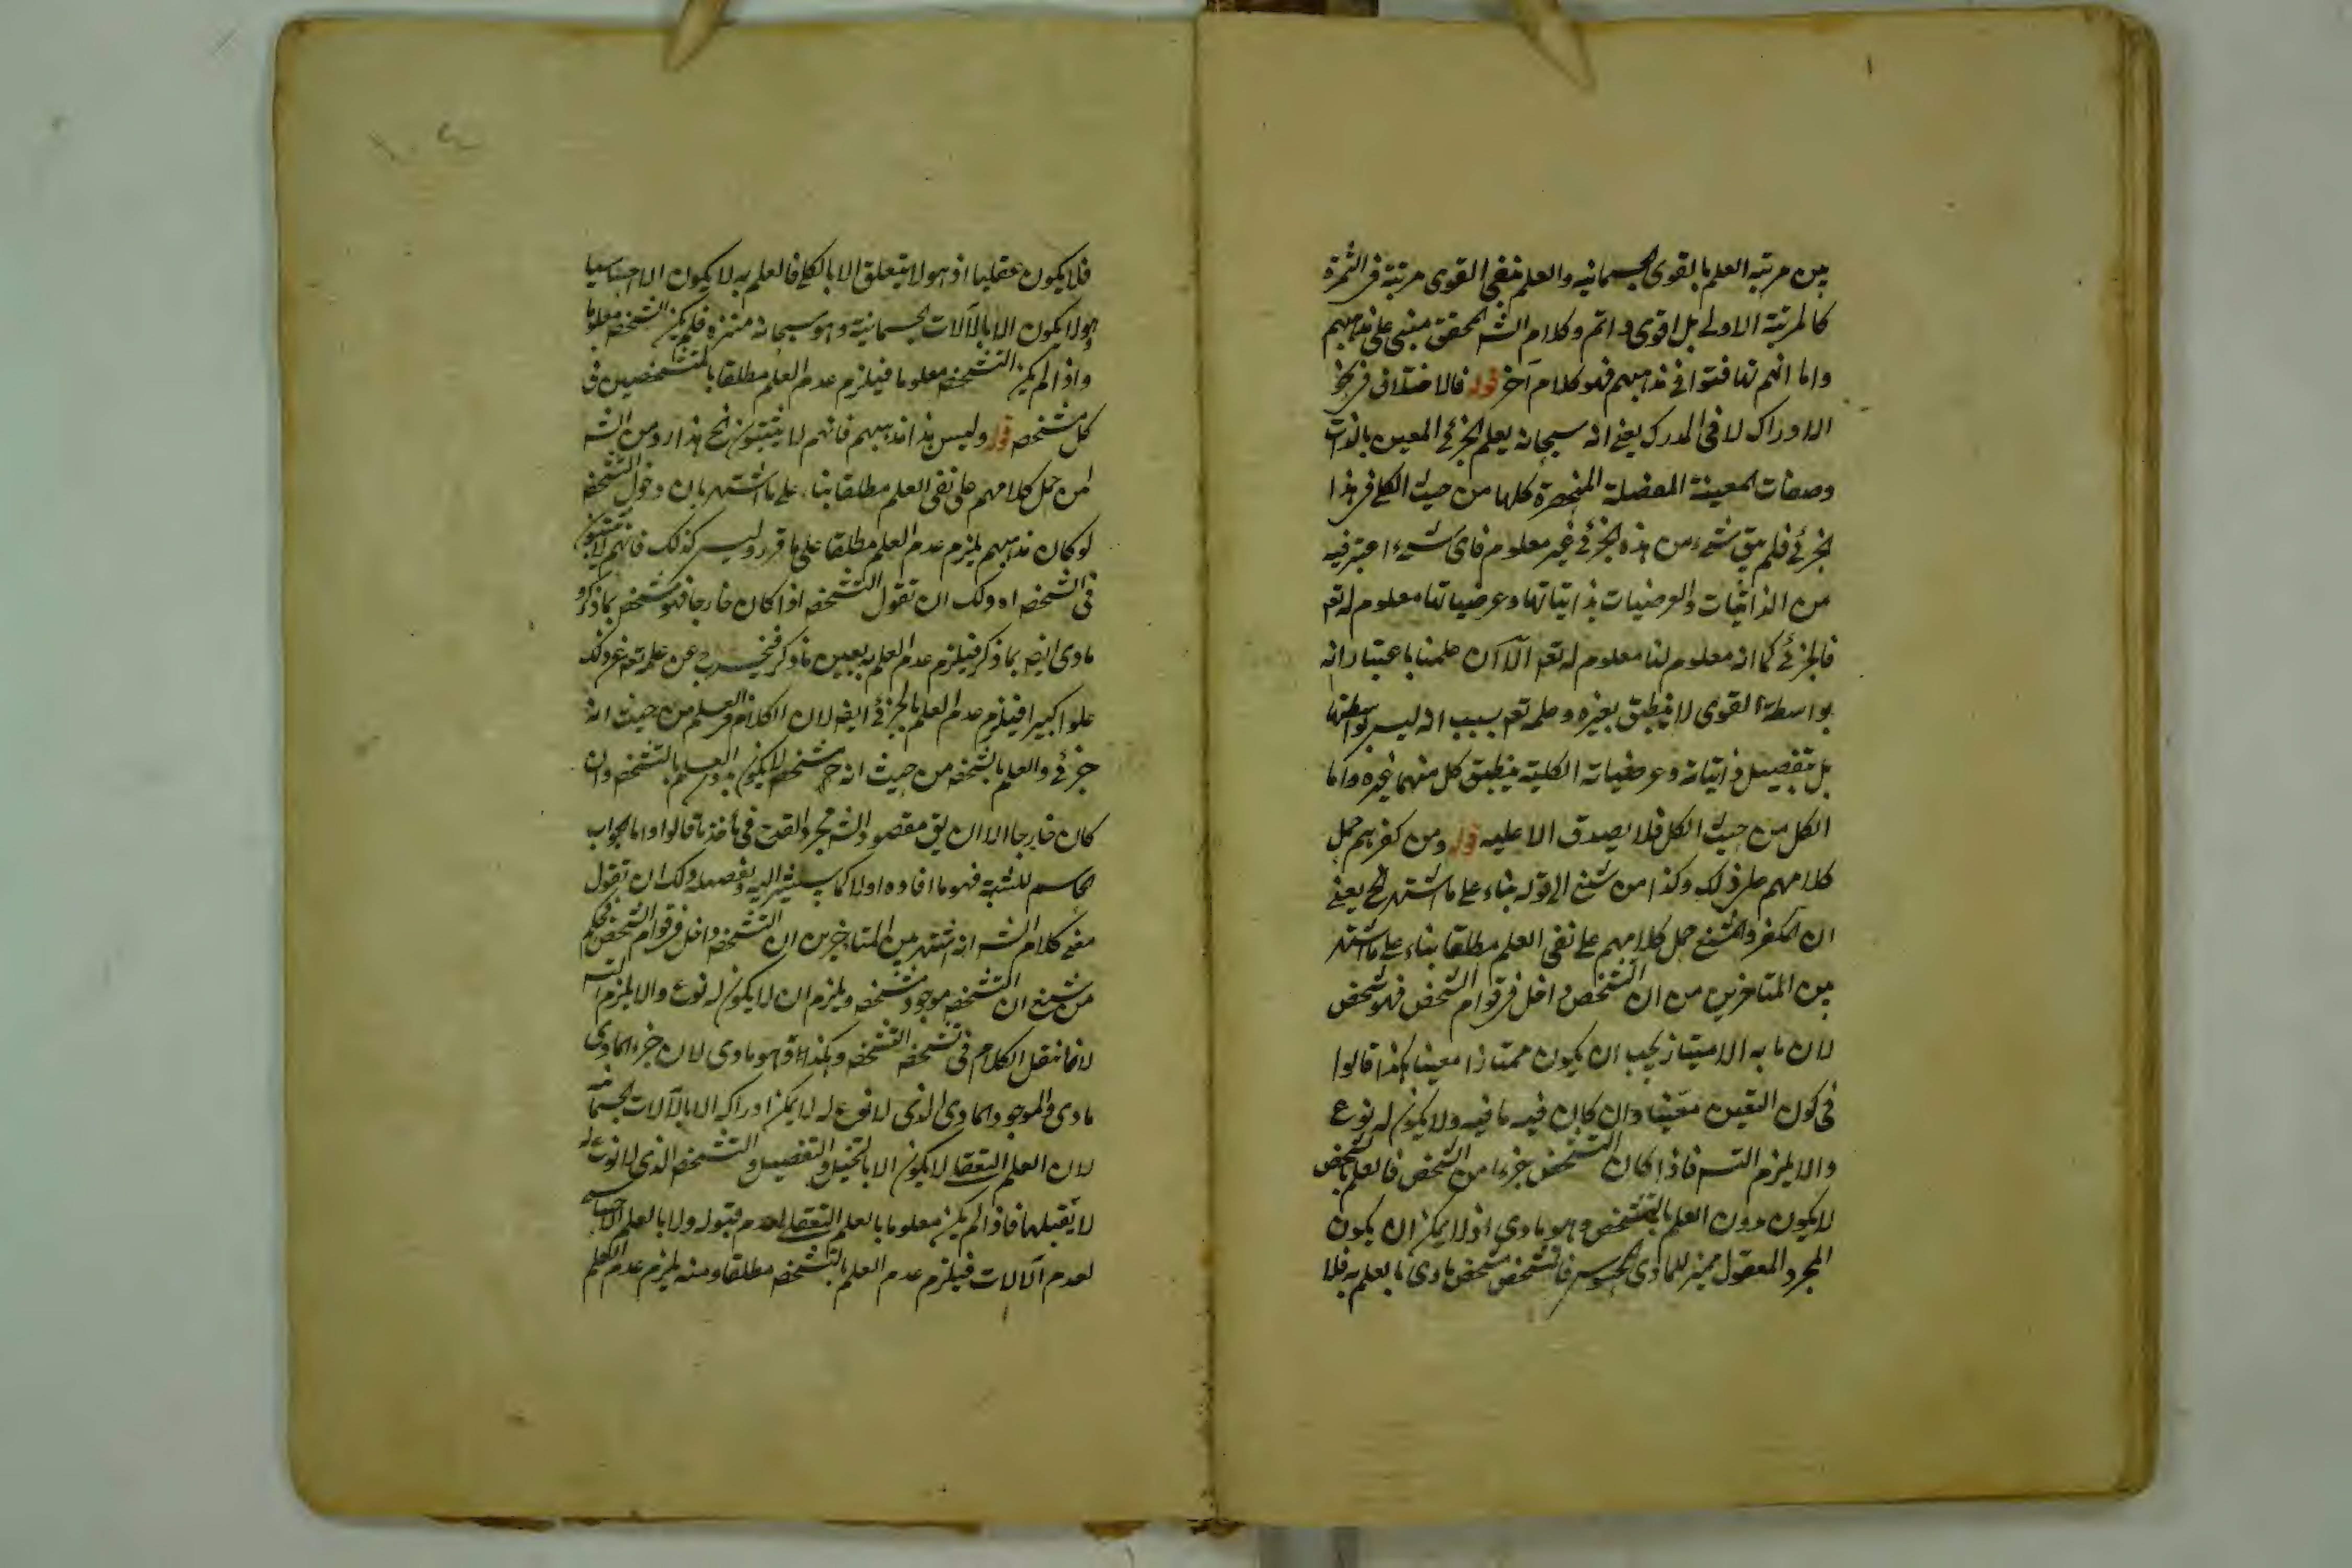 بين مرتبه العلم بالقوى الجسمانيه والعلم بنفى القوى مرتبة فى الثمرة
كالمرتبة الاولى بل اقوى واتم وكلام الشه المحقق مبنى على مذاهبهم
واما انهم تهافتوا فى مذاهبهم فهو كلام آخر قوله فالاختلاف فى نحو
الادراك لا فى المدرك يعنى انه سبحانه يعلم الجزئى المعين بالذات
وصفات المعينة المفصلة المنحصرة كلها من حيث الكلى فى هذا
الجزئى فلم يبق شىء من هذه الجزئى غير معلوم فاى شىء اعتبر فيه
من الذاتيات والعرضيات بذاتياتها وعرضياتها معلوم له تعه
فالجزئى كما انه معلوم لنا معلوم له تعه الا ان علمنا باعتبار انه
بواسطة القوى لا ينطبق بغيره وعلمه تعه بسبب انه ليس بواسطتها
بل بتفصيل ذاتياته وعرضياته الكلية ينطبق كل منهما غيره واما
الكل من حيث الكل فلا يصدق الا عليه قوله ومن كفرهم حمل
كلامهم على ذلك وكذا من شنع الى قوله بناء على ما اشتهر الخ يعنى
ان المكفر والمشنع حمل كلامهم على نفى العلم مطلقا بناء على ما اشتهر
بين المتاخرين من ان التشخص داخل فى قوام الشخص فهو شخص
لان ما به الامتياز يجب ان يكون ممتازا معينا هكذا قالوا
فى كون التعين متعينا وان كان فيه ما فيه ولا يكون له نوع
والا يلزم التسه فاذا كان التشخص جزءا من الشخص فالعلم بالشخص
لا يكون بدون العلم بالتشخص وهو مادى اذ لا يمكن ان يكون
المجرد المعقول مميز للمادى المحسوس فالتشخص متشخص مادى بالعلم به فلا
فلا يكون عقليا اذ هو لا يتعلق الا بالكلى فالعلم به لا يكون الا احساسيا
وهو لا يكون الا بالآلات الجسمانية وهو سبحانه منزه فلم يكن التشخص معلوما
واذا لم يكن التشخص معلوما فيلزم عدم العلم مطلقا بالمتشخصين فى
كل متشخصه قوله وليس هذا مذهبهم فانهم لا يثبتون الخ هذا رد من الشه
لمن حمل كلامهم على نفى العلم مطلقا بناء على ما اشتهر بان دخول التشخصه
لو كان مذهبهم يلزم عدم العلم مطلقا على ما قرر وليس كذلك فانهم لا يثبتون
فى الشخصه اه ولك ان تقول التشخصه اذا كان خارجا فهو متشخص بما ذكروا
مادى ايضه بما ذكر فيلزم عدم العلم به بعين ما ذكر فيخرج عن علمه تعه عن ذلك
علوا كبيرا فيلزم عدم العلم بالجزئى ايضه لان الكلام فى العلم من حيث انه
جزئى والعلم بالشخصه من حيث انه متشخصه لا يكون بدون العلم بالتشخصه وان
كان خارجا الا ان يق مقصود الشه مجرد القدح فى مأخذ ما قالوا واما الجواب
الحاسم للشبه فهو ما افاده اولا كما سيشير اليه بتفصيله ولك ان تقول
معنى كلام الشه انه اشتهر بين المتاخرين ان التشخصه داخل فى قوام الشخص فحكم
من شنع ان التشخصه موجود متشخصه ويلزم ان لا يكون له نوع والا يلزم التسه
لانا ننقل الكلام فى تشخصه التشخصه وهكذا وهو مادى لان جزء المادى
مادى والموجود المادى الذى لا نوع له لا يمكن ادراكه الا بالآلات الجسمانية
لان العلم التعقلى لا يكون الا بالتخيل والتفصيل والتشخصه الذى لا نوع له
لا يقبلها فاذا لم يكن معلوما بالعلم التعقلى لعدم قبوله ولا بالعلم الاحساسى
لعدم الآلات فيلزم عدم العلم بالتشخصه مطلقا ومنه يلزم عدم العلم